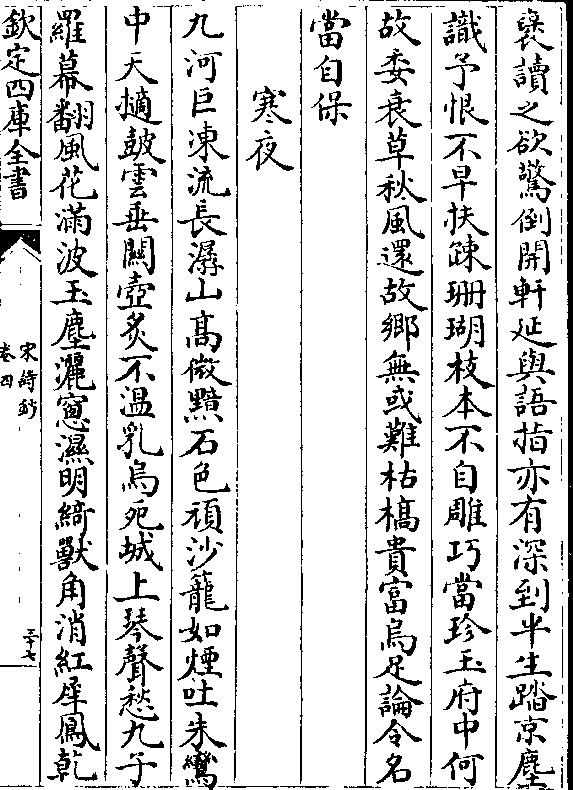 褎讀之欲驚倒開軒延與語指亦有深到半生踏京塵
識予恨不早扶疎珊瑚枝本不自雕巧當珍玉府中何
故委衰草秋風還故鄉無或難枯槁貴富烏足論令名
當自保
寒夜
九河巨凍流長潺山高微黯石色頑沙籠如煙吐朱鸞
中天擿皷雲垂闗壺炙不温乳烏死城上琴聲愁九子
羅幕翻風花滿波玉塵灑窻濕明綺獸角消紅犀鳳乾
欽定四庫全書
宋詩鈔
卷四
三十七